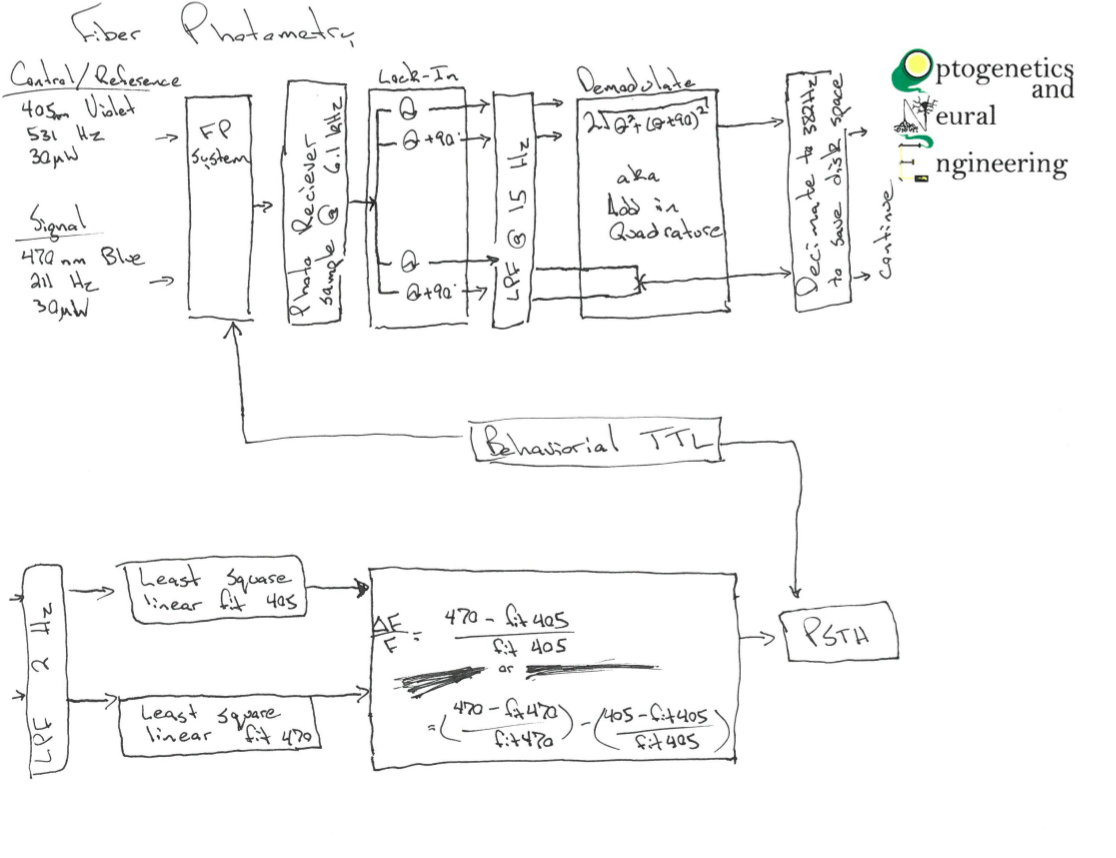 Fiber Photometry
Control/Reference
405nm Violet
531 Hz
30µW
Signal
470 nm Blue
211 Hz
30µW
FP
System
Photo Reciever
sample @ 6.1 kHz
Lock-In
Θ
Θ+90°
Θ
Θ+90°
LPF @ 15 Hz
Demodulate
2√Θ²+(Θ+90)²
aka
Add in
Quadrature
Decimate to 382Hz
to save disk space
Continue
Optogenetics
and
Neural
Engineering
Behaviorial TTL
LPF 2 Hz
Least Square
linear fit 405
Least Square
linear fit 470
ΔF/F = (470 - fit 405)/(fit 405)
or
= ((470 - fit 470)/(fit 470)) - ((405 - fit 405)/(fit 405))
PSTH